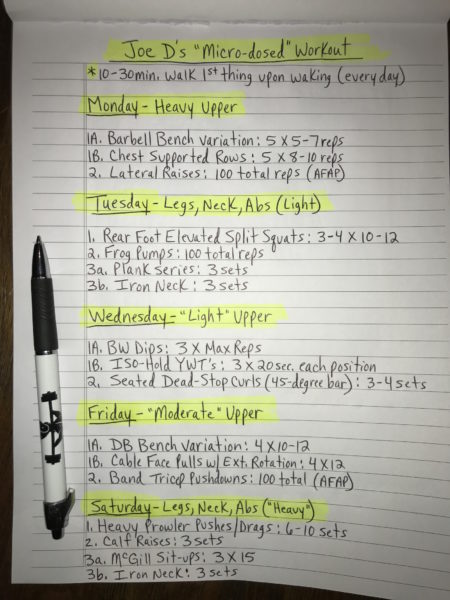 Joe D's "Micro-dosed" Workout
*10-30min. walk 1st thing upon waking (every day)
Monday - Heavy Upper
1A. Barbell Bench variation: 5 x 5-7 reps
1B. Chest Supported Rows: 5 x 8-10 reps
2. Lateral Raises: 100 total reps (AFAP)
Tuesday - Legs, Neck, Abs (Light)
1. Rear Foot Elevated Split Squats: 3-4 x 10-12
2. Frog Pumps: 100 total reps
3a. Plank Series: 3 sets
3b. Iron Neck: 3 sets
Wednesday - "Light" Upper
1A. BW Dips: 3 x Max Reps
1B. ISO-Hold YWT's: 3 x 20sec. each position
2. Seated Dead-Stop Curls (45-degree bar): 3-4 sets
Friday - "Moderate" Upper
1A. DB Bench Variation: 4 x 10-12
1B. Cable Face Pulls w/ Ext. Rotation: 4 x 12
2. Band Tricep Pushdowns: 100 total (AFAP)
Saturday - Legs, Neck, Abs ("Heavy")
1. Heavy Prowler Pushes/Drags: 6-10 sets
2. Calf Raises: 3 sets
3a. McGill Sit-ups: 3 x 15
3b. Iron Neck: 3 sets